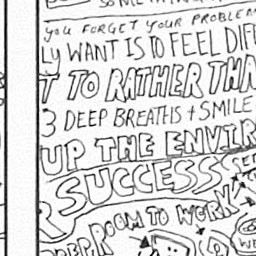 YOU FORGET YOUR PROBLEM
LY WANT IS TO FEEL DIF
T TO RATHER THA
3 DEEP BREATHS + SMILE
UP THE ENVIR
SUCCESS
ROOM TO WORK